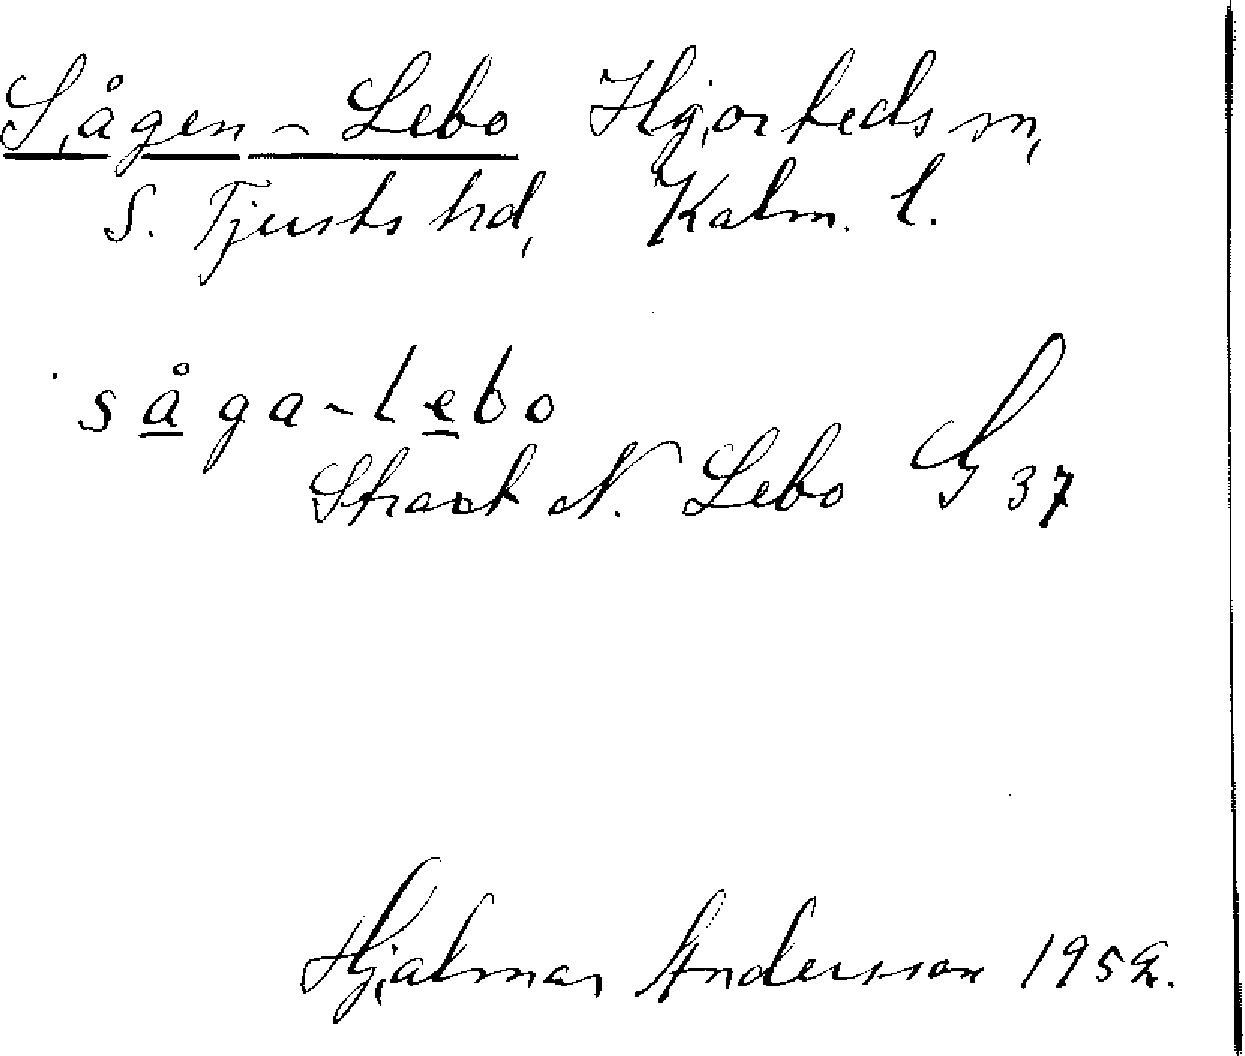 Sågen-Lebo Hjorteds sn,
S. Tjusts hd, Kalm. l.
såga-lebo
Strax N. Lebo G 37
Hjalmar Andersson 1952.